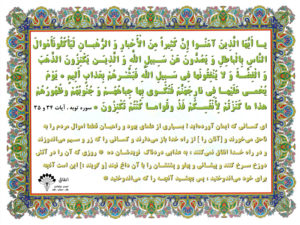 يا أيُّهَا الَّذِينَ آمَنُوا إِنَّ كَثِيراً مِنَ الْأَحْبارِ وَ الرُّهْبانِ لَيَأْكُلُونَ أَمْوالَ
النَّاسِ بِالْباطِلِ وَ يَصُدُّونَ عَنْ سَبِيلِ اللَّهِ وَ الَّذِينَ يَكْنِزُونَ الذَّهَبَ
وَ الْفِضَّةَ وَ لا يُنْفِقُونَها فِي سَبِيلِ اللَّهِ فَبَشِّرْهُمْ بِعَذابٍ أَلِيمٍ * يَوْمَ
يُحْمى عَلَيْها فِي نارِ جَهَنَّمَ فَتُكْوى بِها جِباهُهُمْ وَ جُنُوبُهُمْ وَ ظُهُورُهُمْ
هذا ما كَنَزْتُمْ لِأَنْفُسِكُمْ فَذُوقُوا ما كُنْتُمْ تَكْنِزُونَ * سوره توبه ، آيات ۳۴ و ۳۵
ای کسانی که ایمان آورده‌اید ! بسیاری از علمای یهود و راهبان قطعا اموال مردم را به
ناحق می‌خورند و [آنان را ] از راه خدا باز می‌دارند و کسانی را که زر و سیم می‌اندوزند
و در راه خدا انفاق نمی‌کنند ، به عذابی دردناک نویدشان ده * روزی که آن را در آتش
دوزخ سرخ کنند و پیشانی و پهلو و پشتشان را با آن داغ نهند [و گویند ] این است آنچه
برای خود می‌اندوختید ، پس بچشید آنچه را که می‌اندوختید *
انفاق